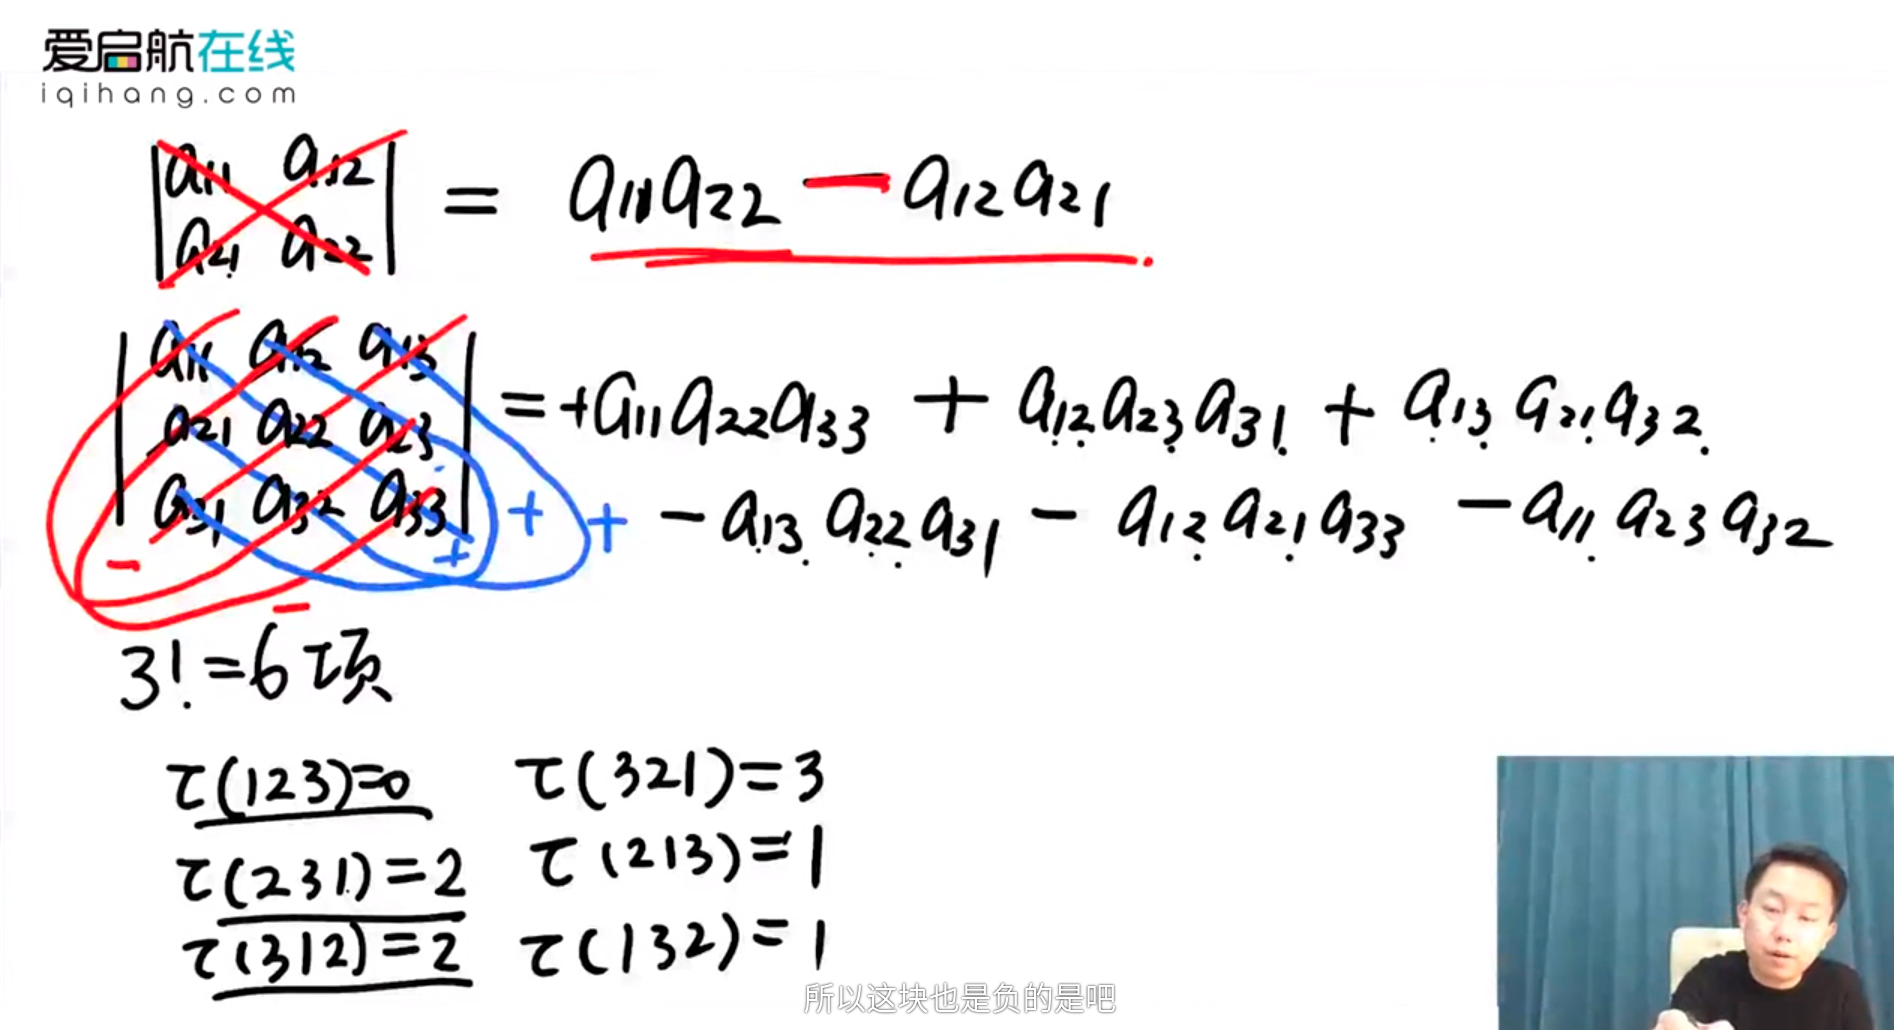 爱启航在线
iqihang.com
|a11 a12|
|a21 a22| = a11a22 - a12a21
|a11 a12 a13|
|a21 a22 a23| = +a11a22a33 + a12a23a31 + a13a21a32
|a31 a32 a33| + + + - a13a22a31 - a12a21a33 - a11a23a32
- -
3! = 6项
τ(123)=0 τ(321)=3
τ(231)=2 τ(213)=1
τ(312)=2 τ(132)=1
所以这块也是负的是吧